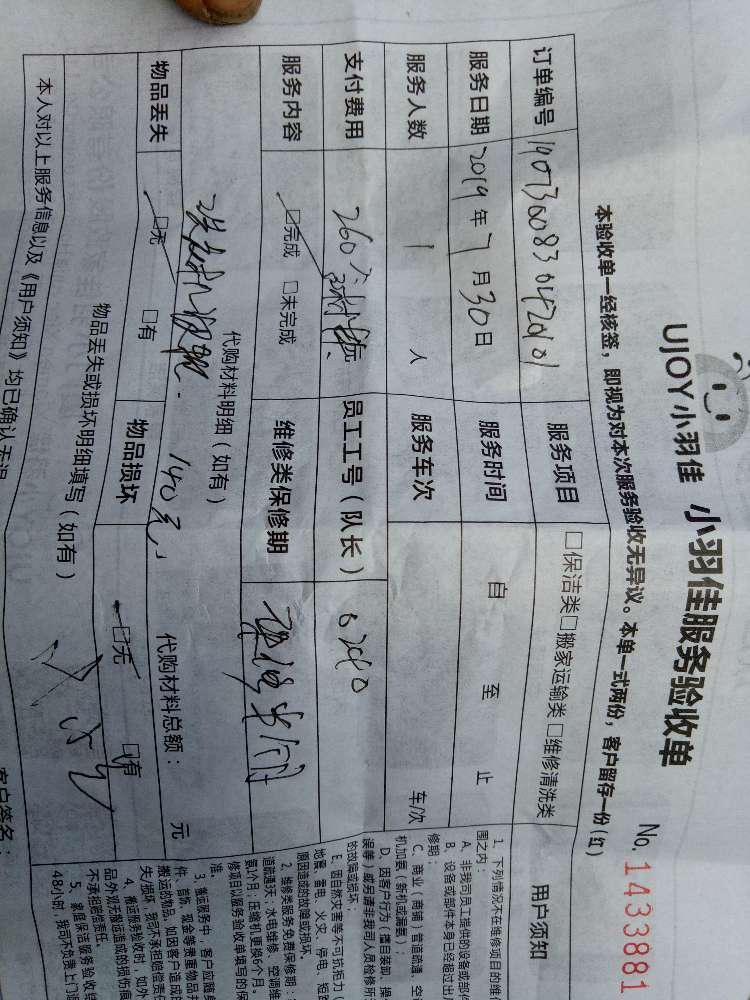 UJOY小羽佳 小羽佳服务验收单
No. 1433881
本验收单一经核签，即视为对本次服务验收无异议。本单一式两份，客户留存一份(红)
订单编号
服务项目 □保洁类□搬家运输类□维修清洗类
服务日期 2019年7月30日 服务时间 自 至 止
服务人数 1 人 服务车次 车/次
支付费用 260元 员工工号（队长） 02410
服务内容 □完成 □未完成 维修类保修期
代购材料明细（如有）
140元 代购材料总额： 元
物品丢失 □无 □有 物品损坏 □无 □有
物品丢失或损坏明细填写（如有）
本人对以上服务信息以及《用户须知》均已确认无误
客户签名：
用户须知
1、下列情况不在维修项目的维
围之内：
A、非我司员工提供的设备或部件
B、设备或部件本身已经超过出
修期；
C、商业（商铺）管道疏通，空
机加氟（新机或漏氟）；
D、因客户行为（擅自装卸，操
误等）或另请非我司人员检修所
的故障或损坏；
E、因自然灾害等不可抗拒力（
地震、雷击、火灾、停电、短路
原因造成的故障或损坏。
2、维修类服务免费保修期：
道疏通3天；水电维修、空调维
氨1个月，压缩机更换6个月。
修项目以服务验收单填写的保
准。
3、搬运服务中，客户应随身
件、首饰、现金等贵重物品并
搬运的物品，如因客户造成的
失/损坏，我司不承担赔偿责任
4、搬运服务验收时，如外
品外观无搬运造成的损伤痕
不承担赔偿责任。
5、家庭保洁服务验收
48小时，我司不负责上门返